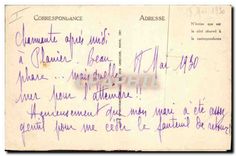 CORRESPONDANCE
ADRESSE
charmante après midi
à Planier. beau
phare ... mais quelle
mer pour l'atteindre!!
17 Mai 1930
Heureusement que mon mari a été assez
gentil pour me céder le fauteuil de retour
N'écrire que sur
le côté réservé à
la correspondance